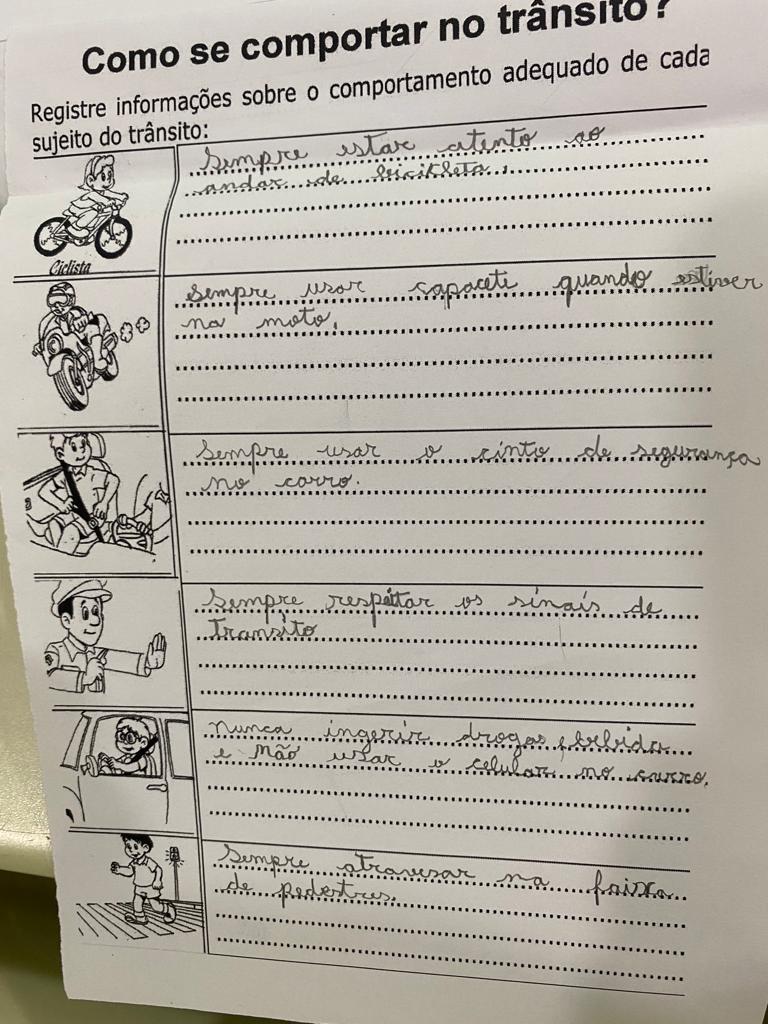 Como se comportar no trânsito?
Registre informações sobre o comportamento adequado de cada
sujeito do trânsito:
Sempre estar atento ao
andar de bicikleta.
Ciclista
Sempre usar capacete quando estiver
na moto.
Sempre usar o cinto de segurança
no carro.
Sempre respeitar os sinais de
transito
Nunca ingerir drogas, bebida
e não usar o celular no carro.
Sempre atravesar na faixa
de pedestres.